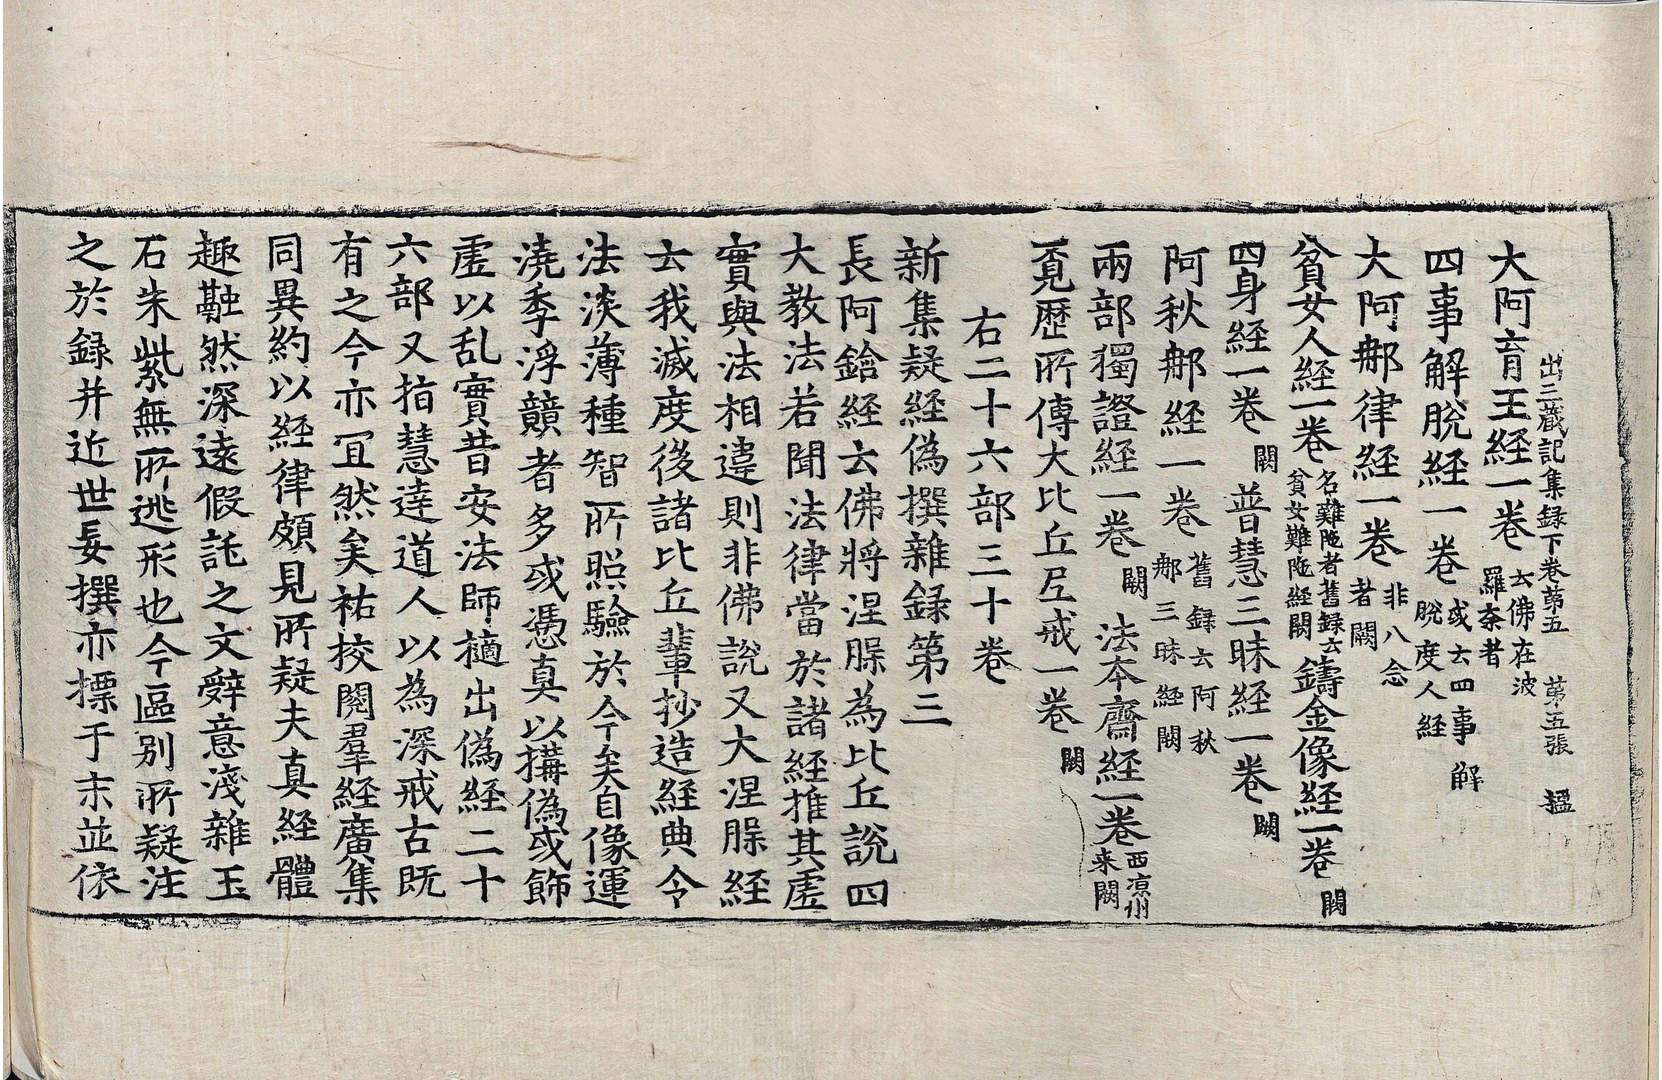 出三藏記集録下卷第五 第五張 榲
大阿育王経一卷 云佛在波羅奈者
四事解脫経一卷 或云四事解脫度人経
大阿郍律経一卷 非八念者闕
貧女人経一卷 名難陁者舊録云貧女難陁経闕 鑄金像経一卷 闕
四身経一卷 闕 普慧三昧経一卷 闕
阿秋郍経一卷 舊録云阿秋郍三昧経闕
兩部獨證経一卷 闕 法本齋経一卷 西凉州来闕
覓歷所傳大比丘尼戒一卷 闕
右二十六部三十卷
新集疑経偽撰雜録第三
長阿鋡経云佛將涅脵為比丘說四
大教法若聞法律當於諸経推其虛
實與法相違則非佛說又大涅脵経
云我滅度後諸比丘輩抄造経典令
法淡薄種智所照驗於今矣自像運
澆季浮競者多或憑真以搆偽或飾
虛以乱實昔安法師摘出偽経二十
六部又指慧達道人以為深戒古既
有之今亦冝然矣祐挍閱羣経廣集
同異約以経律頗見所疑夫真経體
趣融然深遠假託之文辝意淺雜玉
石朱紫無所逃形也今區别所疑注
之於録并近世妄撰亦摽于末並依